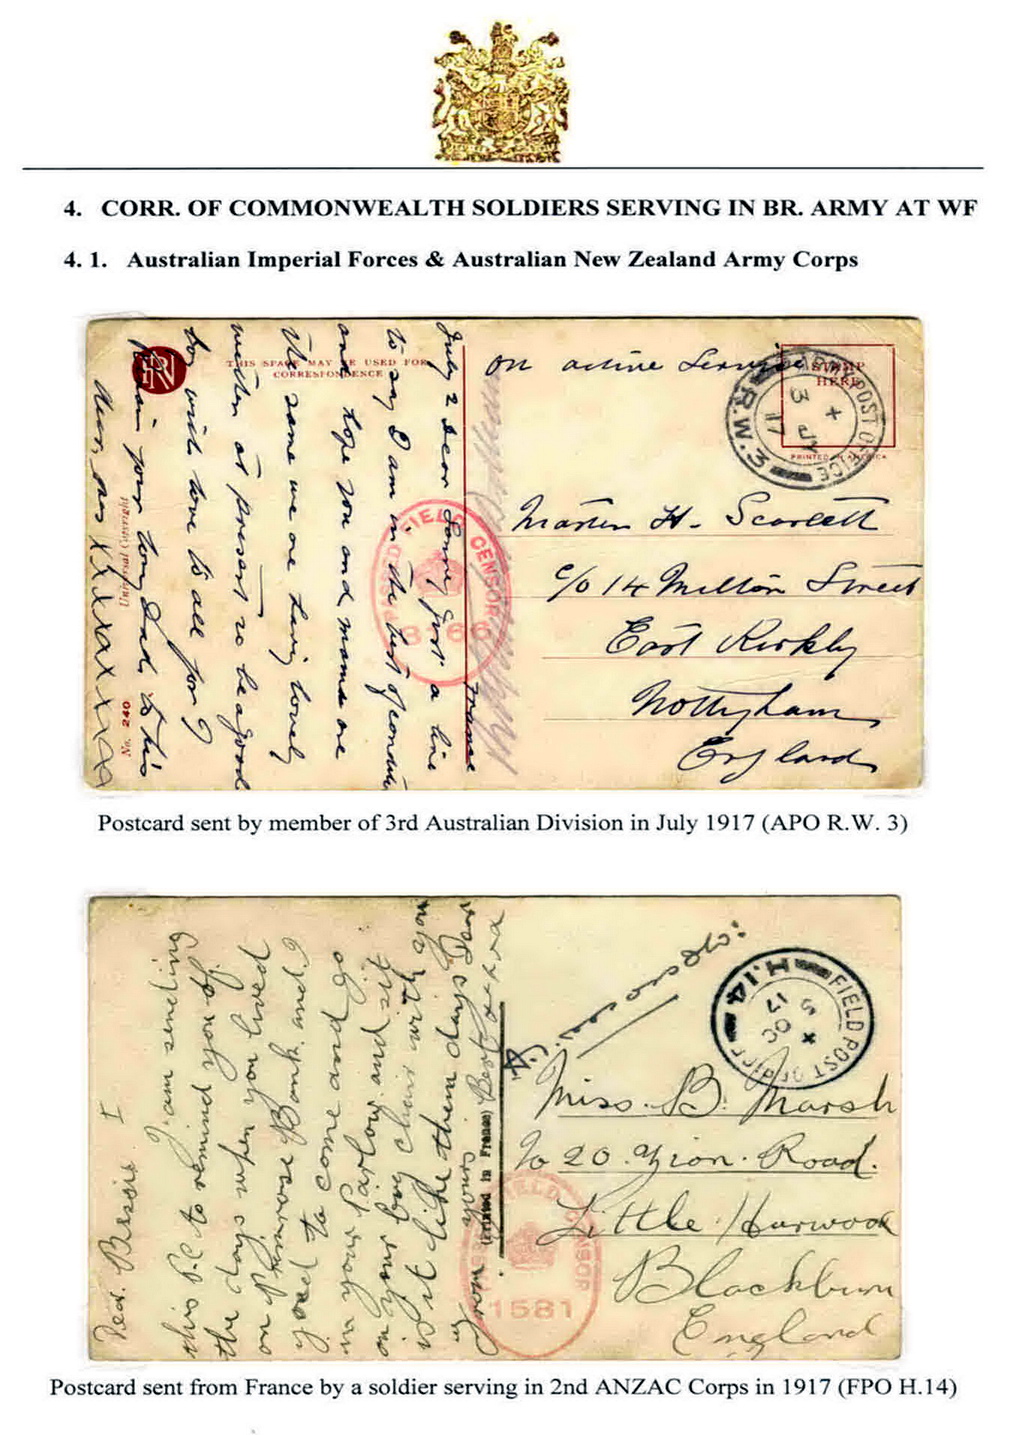 4. CORR. OF COMMONWEALTH SOLDIERS SERVING IN BR. ARMY AT WF
4. 1. Australian Imperial Forces & Australian New Zealand Army Corps
THIS SPACE MAY BE USED FOR
CORRESPONDENCE
Universal Copyright
No. 240
July 2 Dear Lance just a line
to say I am in the best of
and hope you and mama are
the same we are having lovely
weather at present so be a good
boy with love to all from
your loving Dad to his
dear son xxxxxxxxx
France
PASSED FIELD CENSOR
3166
on active Service
STAMP
HERE
PRINTED IN AMERICA
ARMY POST OFFICE
R.W.3
3 JY
17
Martin H. Scarlett
c/o 14 Milton Street
East Kirkby
Nottingham
England
Postcard sent by member of 3rd Australian Division in July 1917 (APO R.W. 3)
Dear Bessie I
I am sending
this P.C to remind you of
the days when you lived
on Primrose Bank and I
used to come and go
in your Parlour and sit
on your chair with you
is it like them days Dear
from yours Bert xxxx
(Printed in France)
PASSED FIELD CENSOR
1581
FIELD POST OFFICE
H.14
5 OC
17
Miss. B. Marsh
20. Zion. Road.
Little Harwood
Blackburn
England
Postcard sent from France by a soldier serving in 2nd ANZAC Corps in 1917 (FPO H.14)